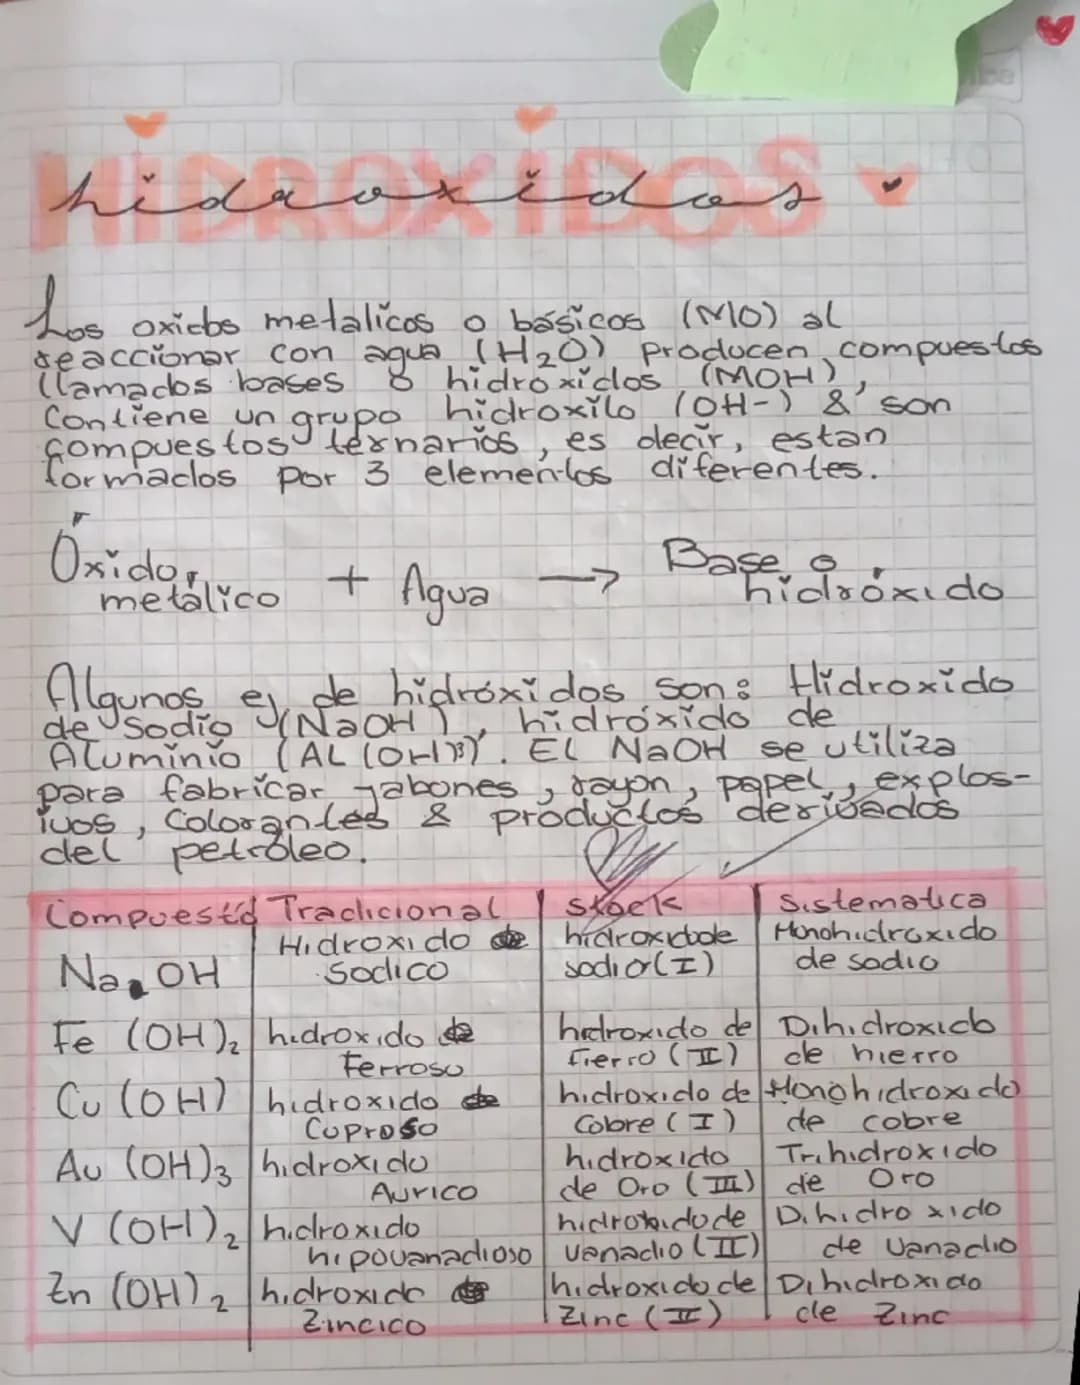 HIDROXIDOS
hidroxidos
Los oxidos metalicos o básicos (MO) al
reaccionar con agua (H₂O) producen compuestos
llamados bases o hidroxidos (MOH),
Contiene un grupo hidroxilo (OH-) & son
compuestos ternarios, es decir, estan
formados por 3 elementos diferentes.
Óxido metálico + Agua → Base o hidróxido
Algunos ej de hidróxidos son: Hidroxido
de Sodio (NaOH), hidróxido de
Aluminio (AL(OH)³). EL NaOH se utiliza
para fabricar jabones, rayon, papel, explos-
ivos, Colorantes & productos derivados
del petróleo.
Compuesto Tradicional Stock Sistematica
Na OH Hidroxido de Sodico hidroxido de sodio (I) Monohidroxido de sodio
Fe (OH)₂ hidroxido de Ferroso hidroxido de Fierro (II) Dihidroxido de hierro
Cu (OH) hidroxido de Cuproso hidroxido de Cobre (I) Monohidroxido de cobre
Au (OH)₃ hidroxido Aurico hidroxido de Oro (III) Trihidroxido de Oro
V (OH)₂ hidroxido hipovanadioso hidroxido de vanadio (II) Dihidroxido de vanadio
Zn (OH)₂ hidroxido de Zincico hidroxido de Zinc (II) Dihidroxido de Zinc